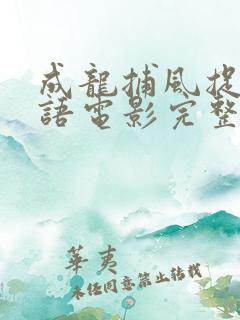 成龍捕風捉
語電影完整
華夷
未經同意禁止轉載